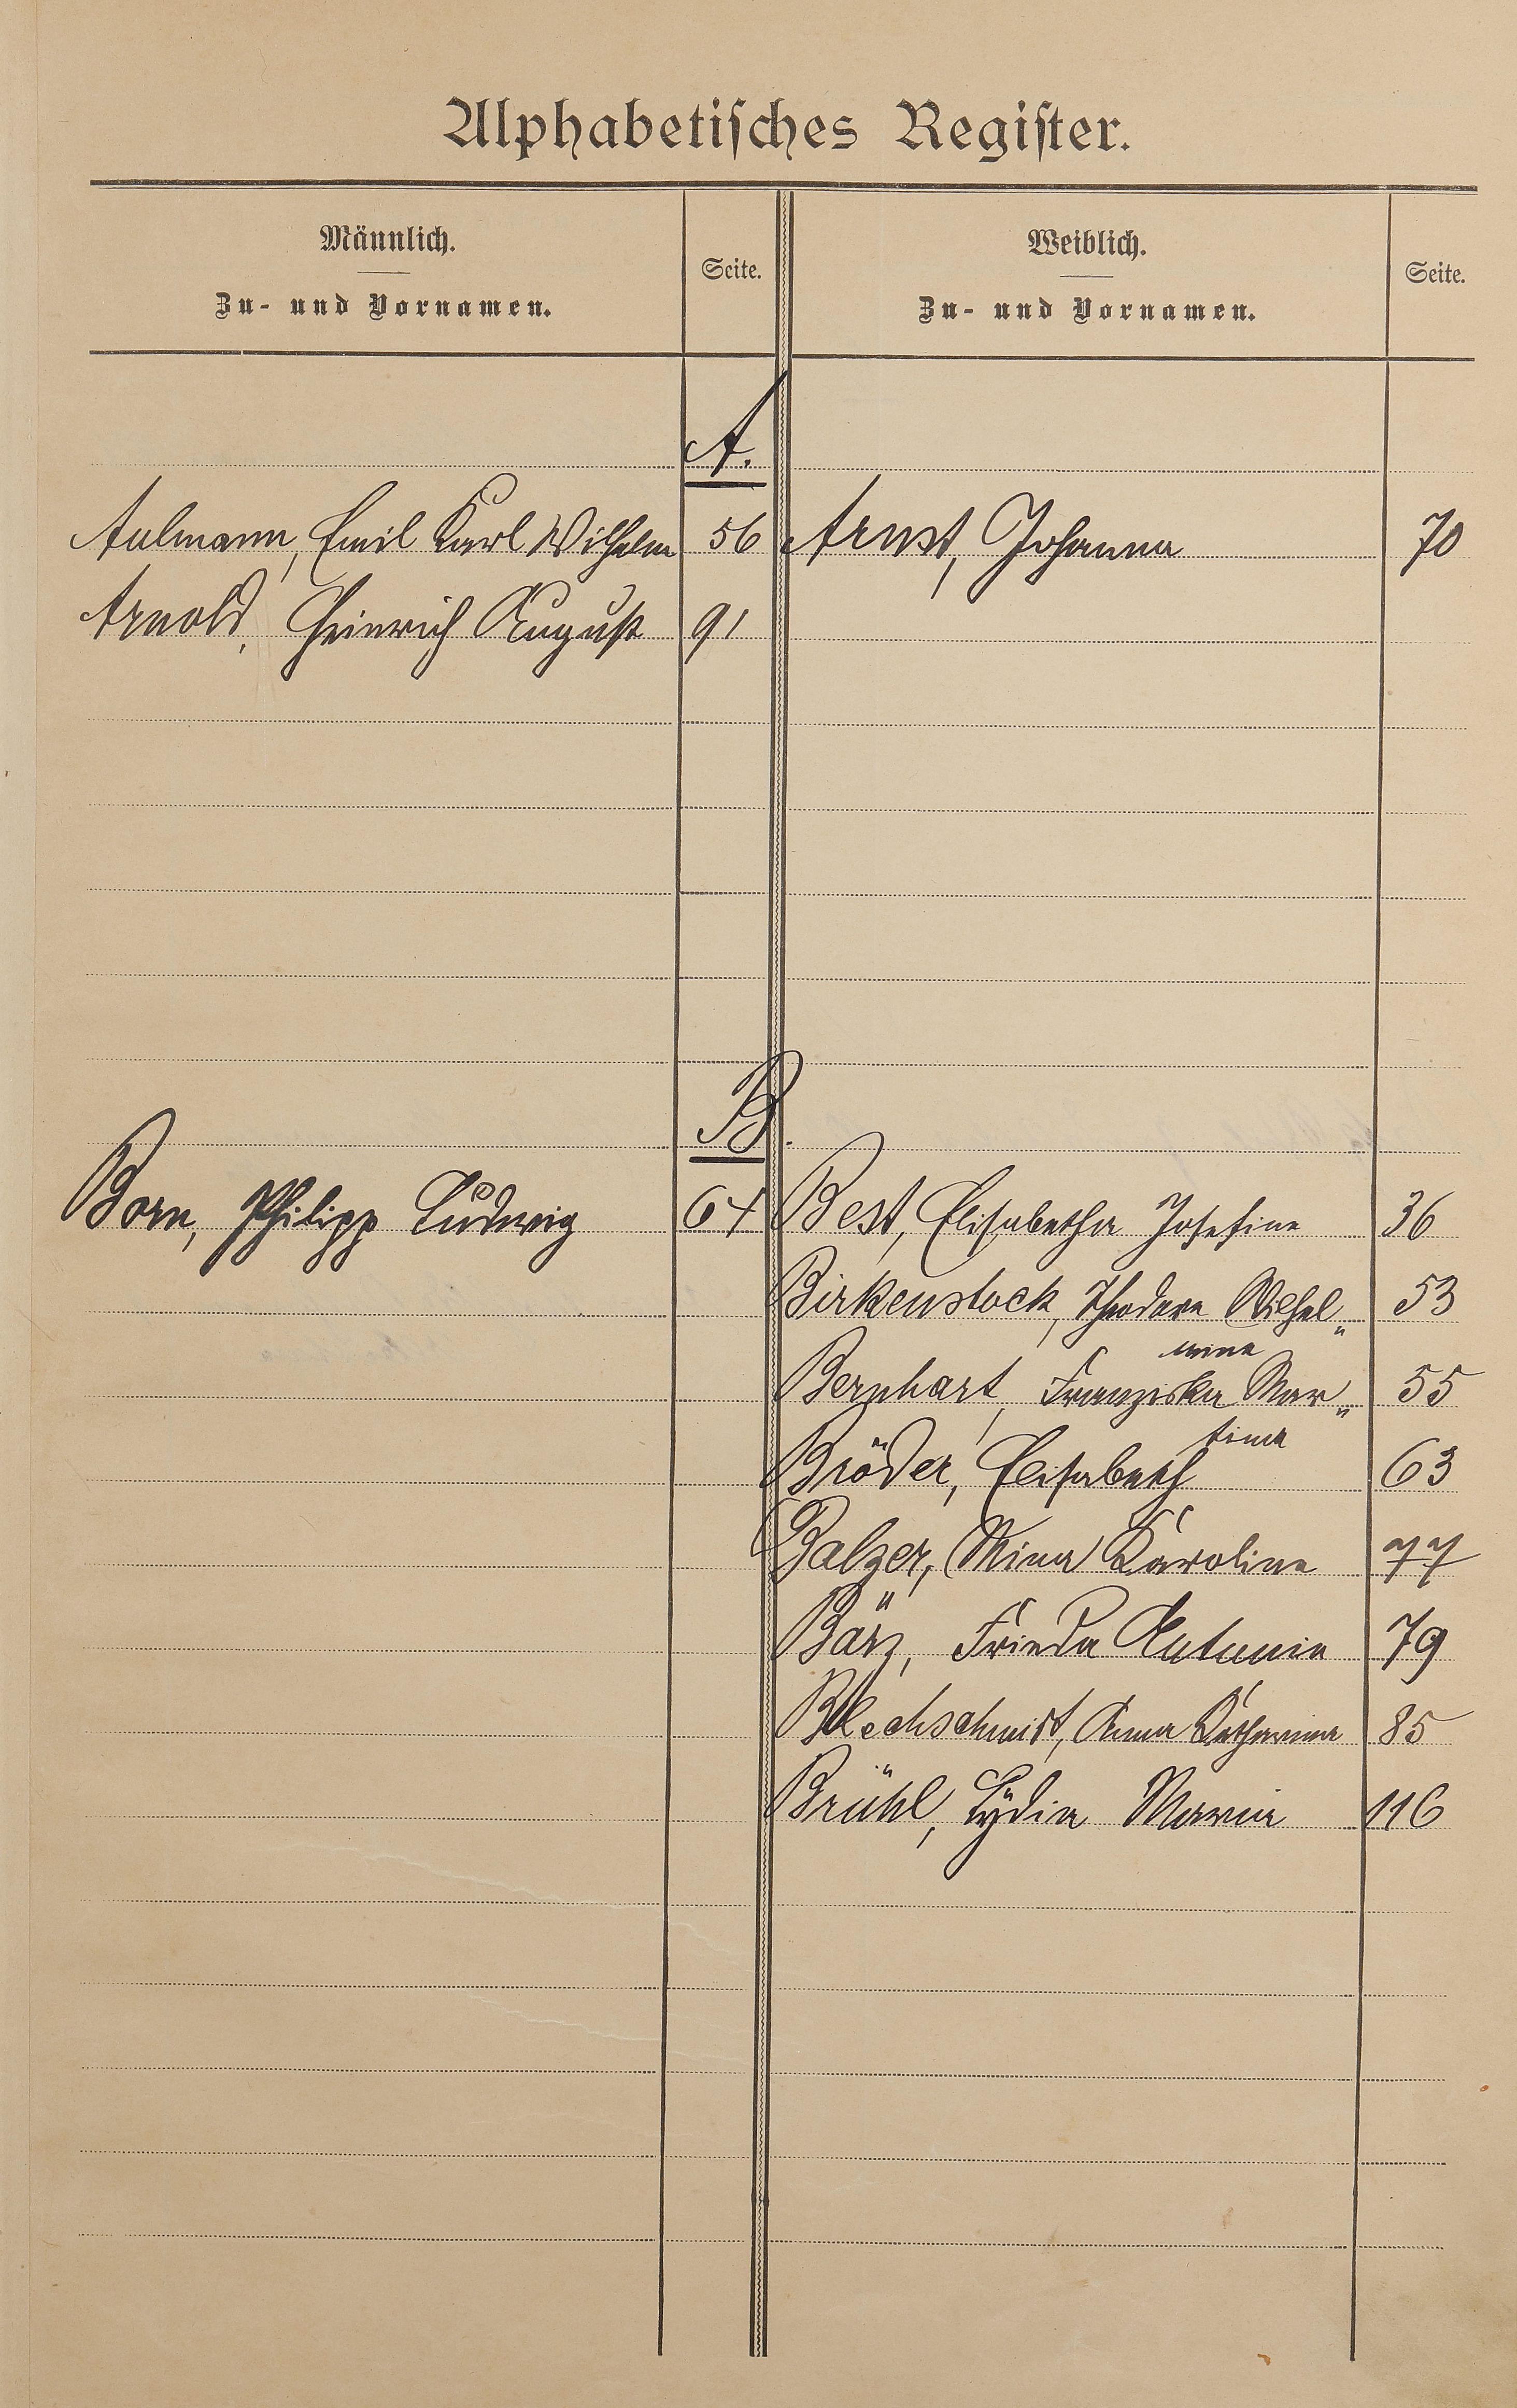 Alphabetisches Register.
Männlich. Seite. Weiblich. Seite.
Zu- und Vornamen. Zu- und Vornamen.
A.
Aulmann, Emil Karl Wilhelm 56 Arnst, Johanna 70
Arnold, Heinrich August 91
B.
Born, Philipp Ludwig 64 Best, Elisabetha Josefine 36
Birkenstock, Theodora Wilhel„ 53
mine
Bernhart, Franziska Mar„ 55
tina
Bröder, Elisabeth 63
Balzer, Mina Karoline 77
Bärz, Frieda Antonie 79
Blechschmidt, Anna Katharina 85
Brühl, Lydia Maria 116